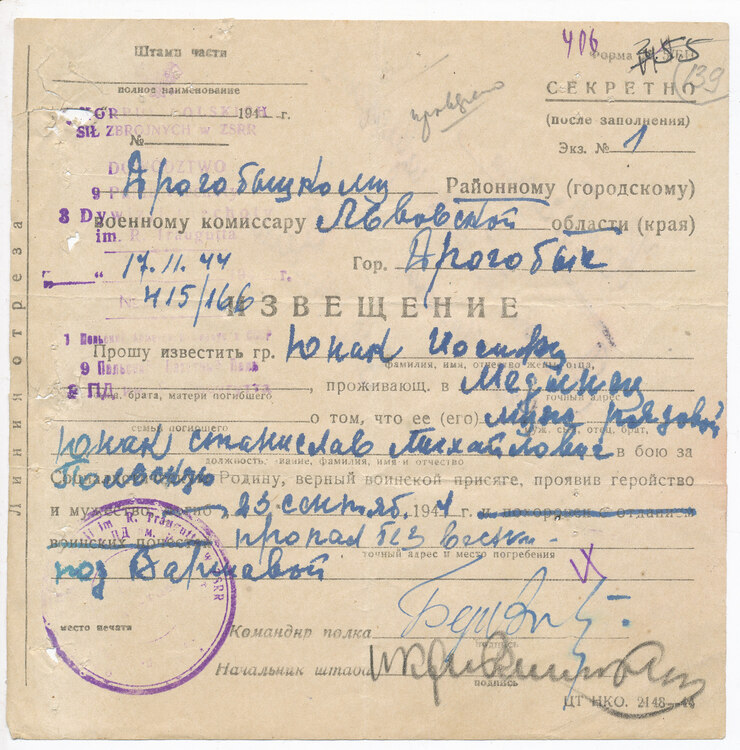 Штамп части
полное наименование
406
Форма
139
СЕКРЕТНО
(после заполнения)
Экз. № 1
проведено
POLSKICH 194 г.
SIŁ ZBROJNYCH w ZSRR
№
DOWÓDZTWO
Дрогобычкому Районному (городскому)
9 P
3 Dyw военному комиссару Львовской области (края)
im. R. Traugutta
"17.11.44 г. Гор. Дрогобыч
№ 415/166
ИЗВЕЩЕНИЕ
Линия отреза
1
Прошу известить гр. Юнак
фамилия, имя, отчество жены, отца,
9
2 ПД , проживающ. в
брата, матери погибшего
точный адрес
о том, что ее (его) рядовой
муж, сын, отец, брат,
семьи погибшего
Юнак Станислав Михайлович в бою за
должность, звание, фамилия, имя и отчество
Польскую Родину, верный воинской присяге, проявив геройство
и мужество, 23 сентяб. 1944 г. и похоронен с отданием
воинских почестей пропал без вести -
точный адрес и место погребения
под Варшавой
im. R. Traugutta w ZSRR
место печати
Командир полка
подпись
Начальник штаба
подпись
ЦТ НКО. 2148—44